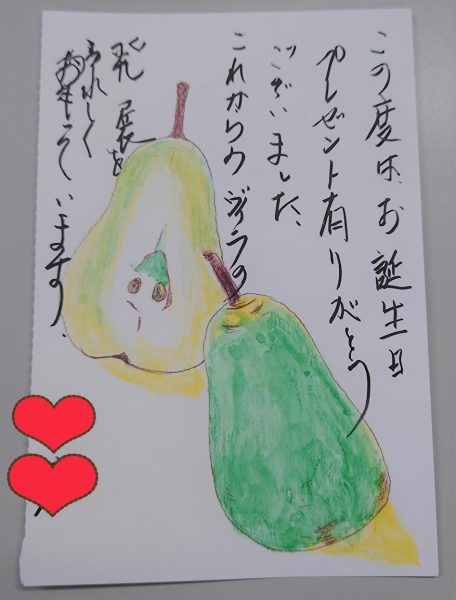 この度は、お誕生日
プレゼント有りがとう
ございました、
これからのヴィラの
発展を
うれしく
おもっています.